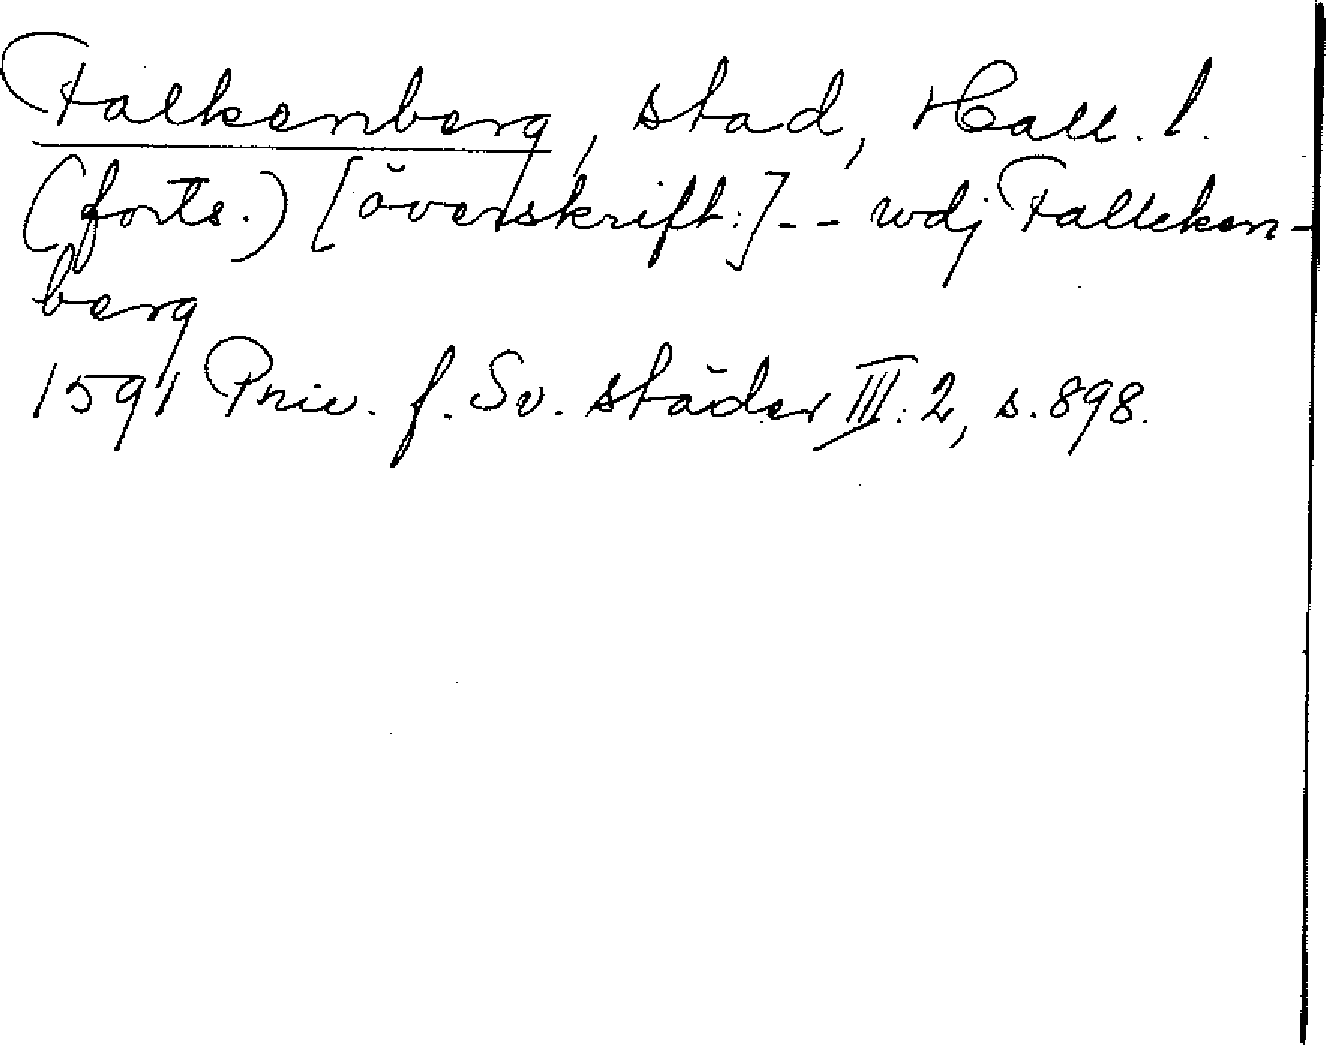 Falkenberg, stad, Hall. l.
(forts.) [överskrift:] - - wdj Falleken-
berg
1591 Priv. f. Sv. städer III: 2, s. 898.